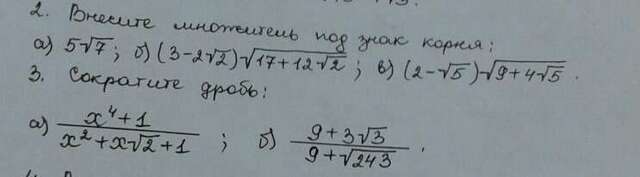 2. Внесите множитель под знак корня:
а) 5√7; б) (3-2√2)√(17+12√2); в) (2-√5)√(9+4√5).
3. Сократите дробь:
а) (x⁴+1)/(x²+x√2+1); б) (9+3√3)/(9+√243).